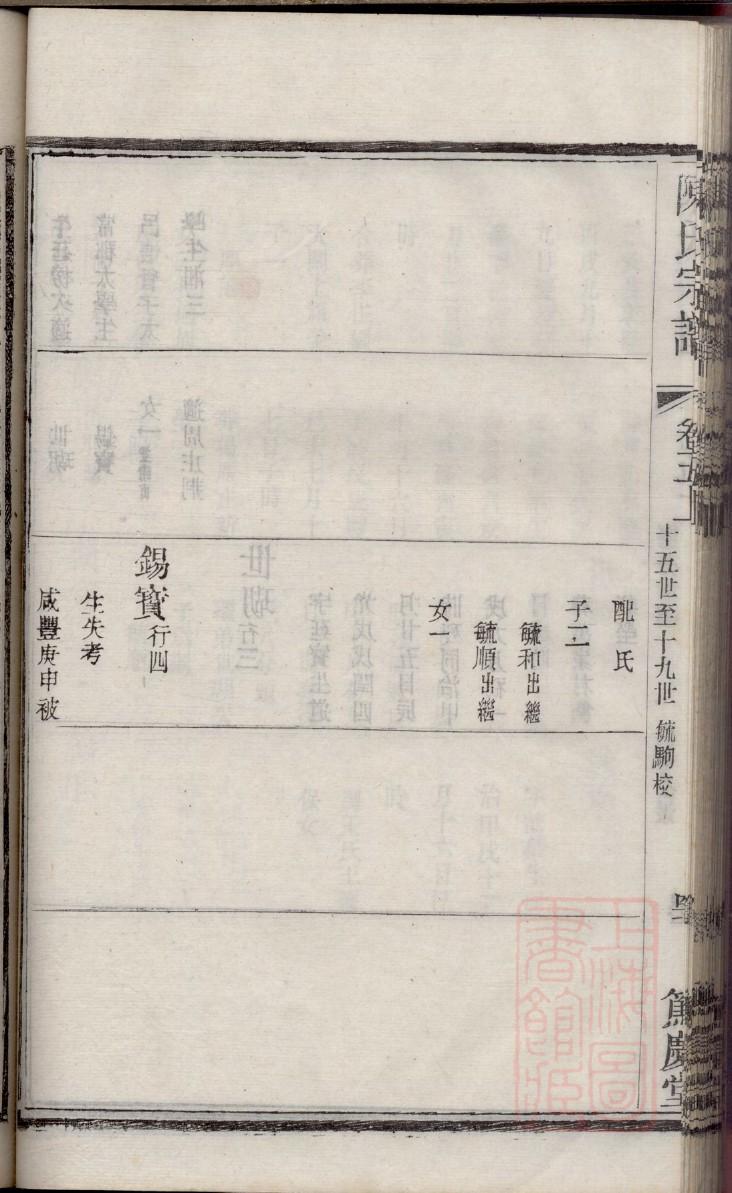 陳氏宗譜
卷五上
十五世至十九世 毓駒校
篤慶堂
配氏
子二
毓和出繼
毓順出繼
女一
錫寶行四
生失考
咸豐庚申被
上海圖
書館藏